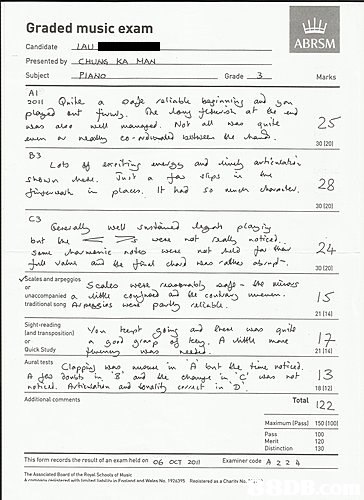 Graded music exam
ABRSM
Candidate LAU
Presented by CHUNG KA MAN
Subject PIANO Grade 3 Marks
A1
2011 Quite a safe reliable beginning and you
played out firmly. The long flourish at the end
was also well managed. Not all was quite 25
even or neatly co-ordinated between the hands.
30 (20)
B3
Lots of exciting energy and lively articulation
shown here. Just a few slips in the 28
fingerwork in places. It had so much character.
30 (20)
C3
Generally well sustained legato playing
but the < > were not really noticed.
Some harmonic notes were not held for their 24
full value and the final chord was rather abrupt.
30 (20)
Scales and arpeggios
or
unaccompanied
traditional song
Scales were reasonably safe - the minors
a little confused and the contrary movement. 15
Arpeggios were partly reliable.
21 (14)
Sight-reading
(and transposition)
or
Quick Study
You kept going and there was quite
a good grasp of key. A little more 17
fluency was needed.
21 (14)
Aural tests
Clapping was unsure in 'A' but the time noticed.
A few doubts in 'B' and the change in 'C' was not 13
noticed. Articulation and tonality correct in 'D'.
18 (12)
Additional comments
Total 122
Maximum (Pass) 150 (100)
Pass 100
Merit 120
Distinction 130
This form records the result of an exam held on 06 OCT 2011 Examiner code A 2 2 4
The Associated Board of the Royal Schools of Music
A company registered with limited liability in England and Wales No. 1926395 Registered as a Charity No.